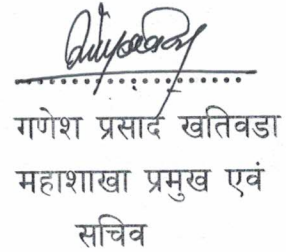 गणेश प्रसाद खतिवडा
महाशाखा प्रमुख एवं
सचिव